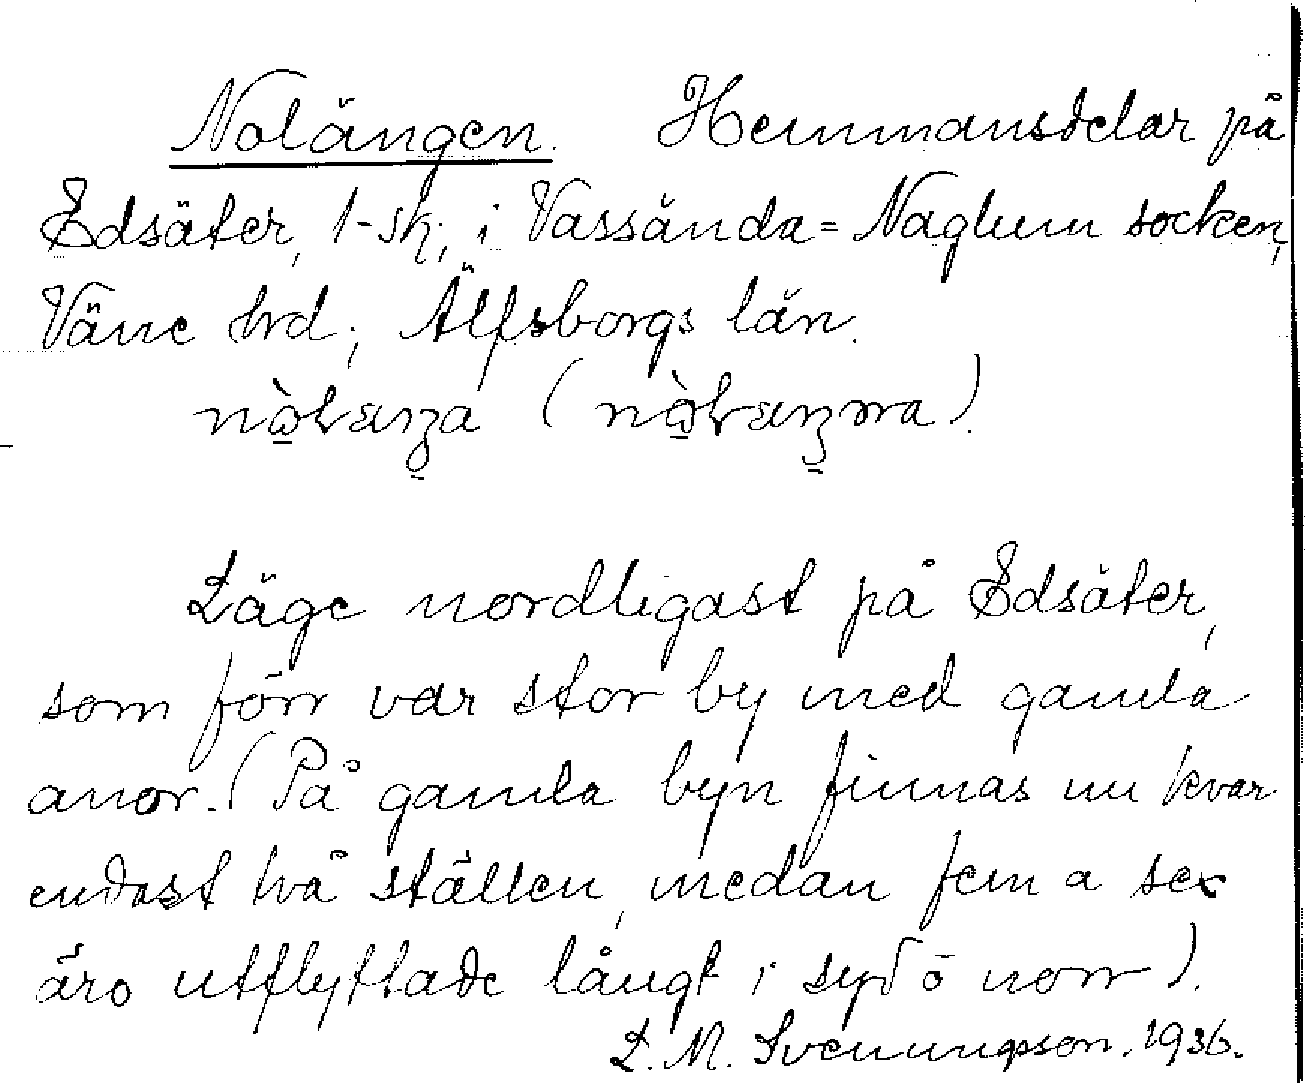 Nolängen. Hemmansdelar på
Edsäter, 1-sk; i Vassända=Naglum socken,
Väne hrd; Älfsborgs län.
Läge nordligast på Edsäter,
som förr var stor by med gamla
anor. (På gamla byn finnas nu kvar
endast två ställen, medan fem a sex
äro utflyttade långt i syd ö norr).
L. M. Svenungsson. 1936.